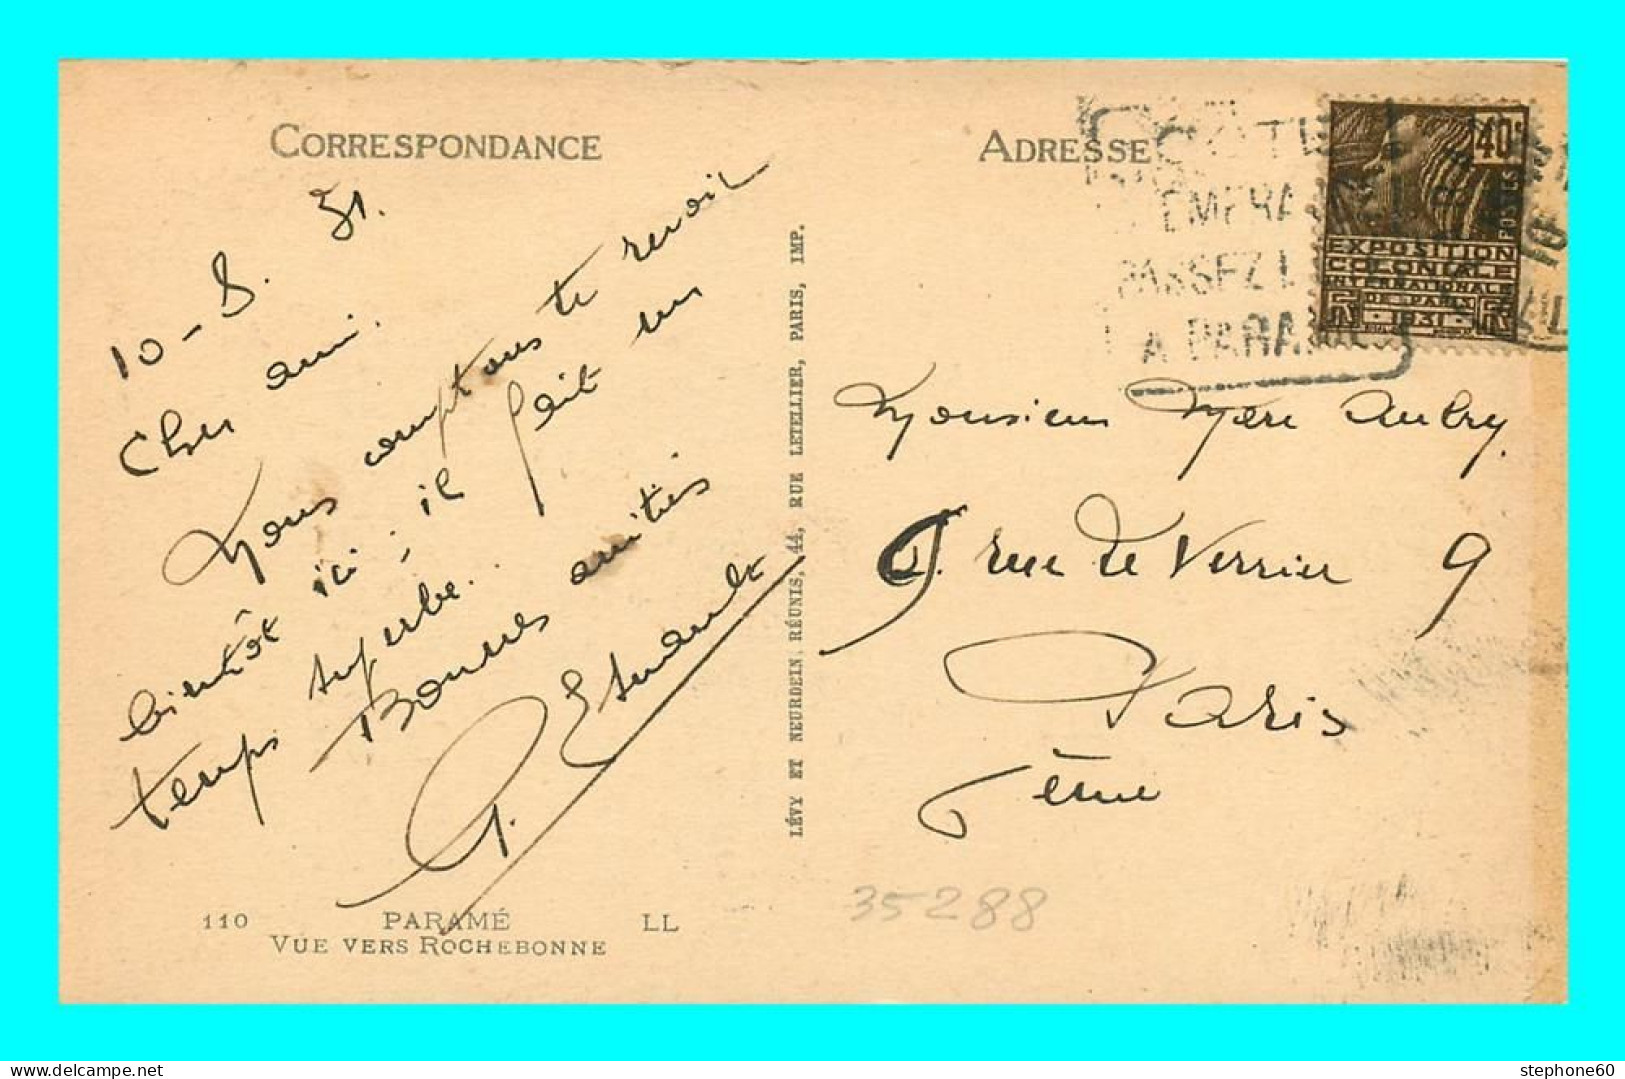 CORRESPONDANCE
10-8. 31.
Cher ami.
Nous comptons te revoir
bientôt ici; il fait un
temps superbe.
Bonnes amitiés
110 PARAMÉ LL
VUE VERS ROCHEBONNE
LÉVY ET NEURDEIN RÉUNIS, 44, RUE LETELLIER, PARIS, IMP.
ADRESSE
EMERA
PASSEZ
A PARA
40c
POSTES
EXPOSITION
COLONIALE
INTERNATIONALE
DE PARIS
1931
Monsieur Marc Aubry.
9 rue de Verrier 9
Paris
6ème
35288
delcampe.net
stephone60